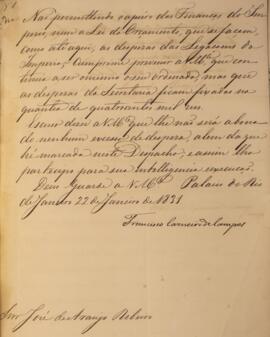 Não permittindo o apuro das Finanças do Im-
perio, nem a Lei do Orçamento, que se façam,
como até aqui, as despezas das Legações do
Imperio; Cumpre-me prevenir a V.Mce que con-
tinua a ser o mesmo o seu ordenado, mas que
as despezas da Secretaria ficam fixadas na
quantia de quatrocentos mil
escuso dizer a V.Mce que lhe não será abona-
do nenhum excesso de despeza, alem da que
hé marcada neste Despacho; e assim lho
participo para sua Intelligencia e execução.
Deos Guarde a V.Mce Palacio do Rio
de Janeiro 22 de Janeiro de 1831
Francisco Carneiro de Campos
Snr José de Araujo Ribeiro